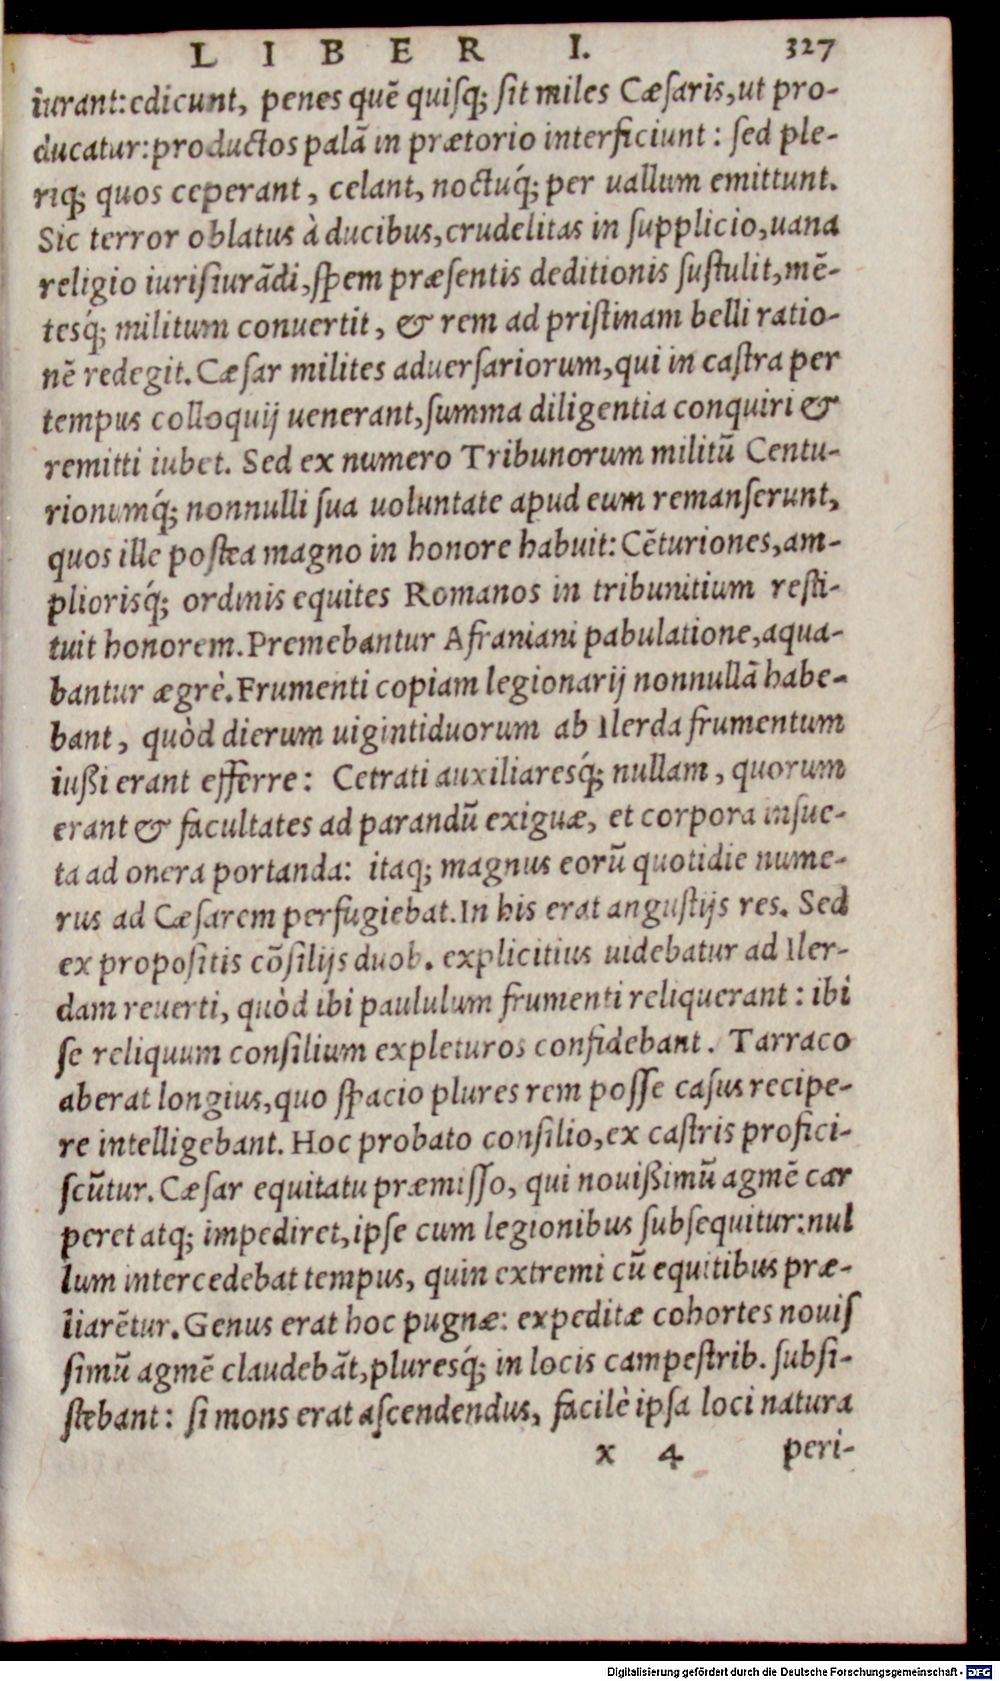 LIBER I. 327
iurant: edicunt, penes quẽ quisq; sit miles Cæsaris, ut pro-
ducatur: productos palã in prætorio interficiunt: sed ple-
riq; quos ceperant, celant, noctuq́; per uallum emittunt.
Sic terror oblatus à ducibus, crudelitas in supplicio, uana
religio iurisiurãdi, spem præsentis deditionis sustulit, mẽ-
tesq́; militum conuertit, & rem ad pristinam belli ratio-
nẽ redegit. Cæsar milites aduersariorum, qui in castra per
tempus colloquij uenerant, summa diligentia conquiri &
remitti iubet. Sed ex numero Tribunorum militũ Centu-
rionumq́; nonnulli sua uoluntate apud eum remanserunt,
quos ille postea magno in honore habuit: Cẽturiones, am-
pliorisq́; ordinis equites Romanos in tribunitium resti-
tuit honorem. Premebantur Afraniani pabulatione, aqua-
bantur ægrè. Frumenti copiam legionarij nonnullã habe-
bant, quòd dierum uigintiduorum ab Ilerda frumentum
iußi erant efferre: Cetrati auxiliaresq́; nullam, quorum
erant & facultates ad parandũ exiguæ, et corpora insue-
ta ad onera portanda: itaq; magnus eorũ quotidie nume-
rus ad Cæsarem perfugiebat. In his erat angustijs res. Sed
ex propositis cõsilijs duob. explicitius uidebatur ad Iler-
dam reuerti, quòd ibi paululum frumenti reliquerant: ibi
se reliquum consilium expleturos confidebant. Tarraco
aberat longius, quo spacio plures rem posse casus recipe-
re intelligebant. Hoc probato consilio, ex castris profici-
scũtur. Cæsar equitatu præmisso, qui nouißimũ agmẽ car
peret atq; impediret, ipse cum legionibus subsequitur: nul
lum intercedebat tempus, quin extremi cũ equitibus præ-
liarẽtur. Genus erat hoc pugnæ: expeditæ cohortes nouis
simũ agmẽ claudebãt, pluresq́; in locis campestrib. subsi-
stebant: si mons erat ascendendus, facilè ipsa loci natura
x 4 peri-
Digitalisierung gefördert durch die Deutsche Forschungsgemeinschaft - DFG